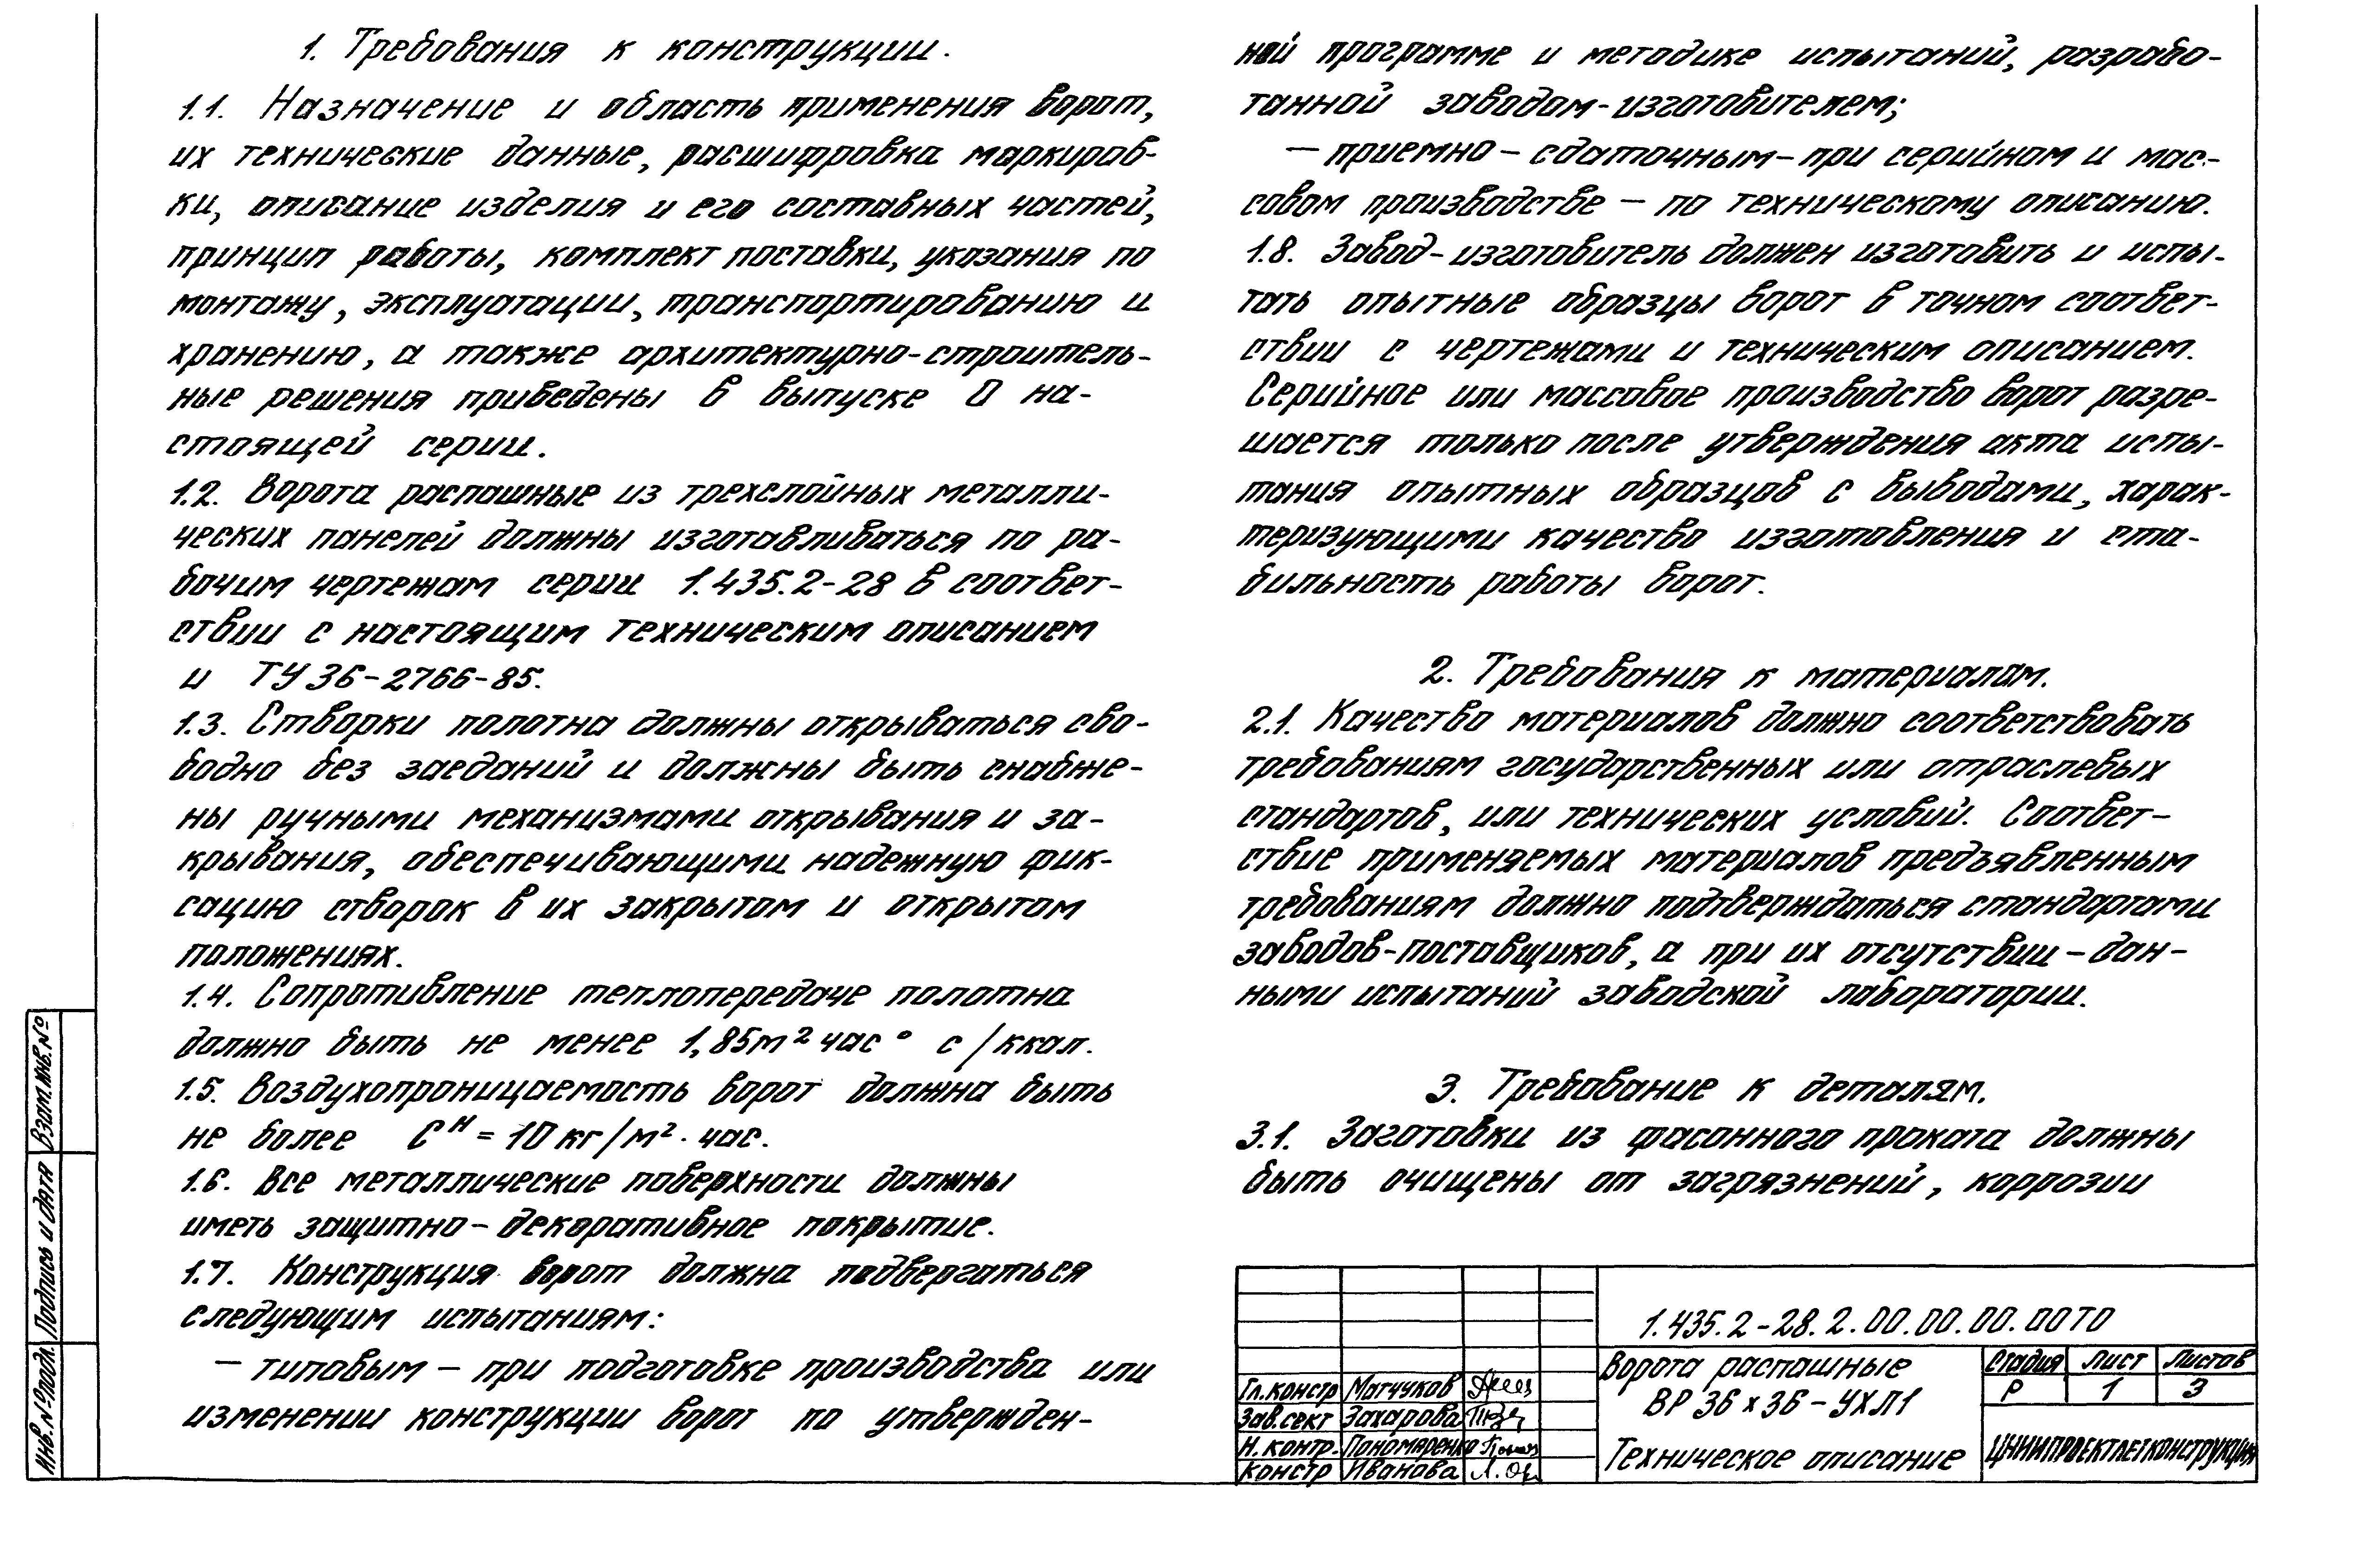 1. Требования к конструкции.
1.1. Назначение и область применения ворот,
их технические данные, расшифровка маркиров-
ки, описание изделия и его составных частей,
принцип работы, комплект поставки, указания по
монтажу, эксплуатации, транспортированию и
хранению, а также архитектурно-строитель-
ные решения приведены в выпуске 0 на-
стоящей серии.
1.2. Ворота распашные из трехслойных металли-
ческих панелей должны изготавливаться по ра-
бочим чертежам серии 1.435.2-28 в соответ-
ствии с настоящим техническим описанием
и ТУ 36-2766-85.
1.3. Створки полотна должны открываться сво-
бодно без заеданий и должны быть снабже-
ны ручными механизмами открывания и за-
крывания, обеспечивающими надежную фик-
сацию створок в их закрытом и открытом
положениях.
1.4. Сопротивление теплопередаче полотна
должно быть не менее 1,85м² час ° с/ккал.
1.5. Воздухопроницаемость ворот должна быть
не более Cᴴ = 10 кг/м²· час.
1.6. Все металлические поверхности должны
иметь защитно-декоративное покрытие.
1.7. Конструкция ворот должна подвергаться
следующим испытаниям:
— типовым — при подготовке производства или
изменении конструкции ворот по утвержден-
ной программе и методике испытаний, разрабо-
танной заводом-изготовителем;
— приемно-сдаточным-при серийном и мас-
совом производстве — по техническому описанию.
1.8. Завод-изготовитель должен изготовить и испы-
тать опытные образцы ворот в точном соответ-
ствии с чертежами и техническим описанием.
Серийное или массовое производство ворот разре-
шается только после утверждения акта испы-
тания опытных образцов с выводами, харак-
теризующими качество изготовления и ста-
бильность работы ворот.
2. Требования к материалам.
2.1. Качество материалов должно соответствовать
требованиям государственных или отраслевых
стандартов, или технических условий. Соответ-
ствие применяемых материалов предъявленным
требованиям должно подтверждаться стандартами
заводов-поставщиков, а при их отсутствии-дан-
ными испытаний заводской лаборатории.
3. Требование к деталям.
3.1. Заготовки из фасонного проката должны
быть очищены от загрязнений, коррозии
1.435.2-28.2.00.00.00.00ТО
Ворота распашные
ВР 36х36-УХЛ1
Техническое описание
Стадия Лист Листов
Р 1 3
ЦНИИПРОЕКТЛЕГКОНСТРУКЦИЯ
Гл.констр Матчуков
Зав.сект Захарова
Н.контр. Пономаренко
Констр Иванова
Взам.инв.№
Подпись и дата
Инв.№подл.